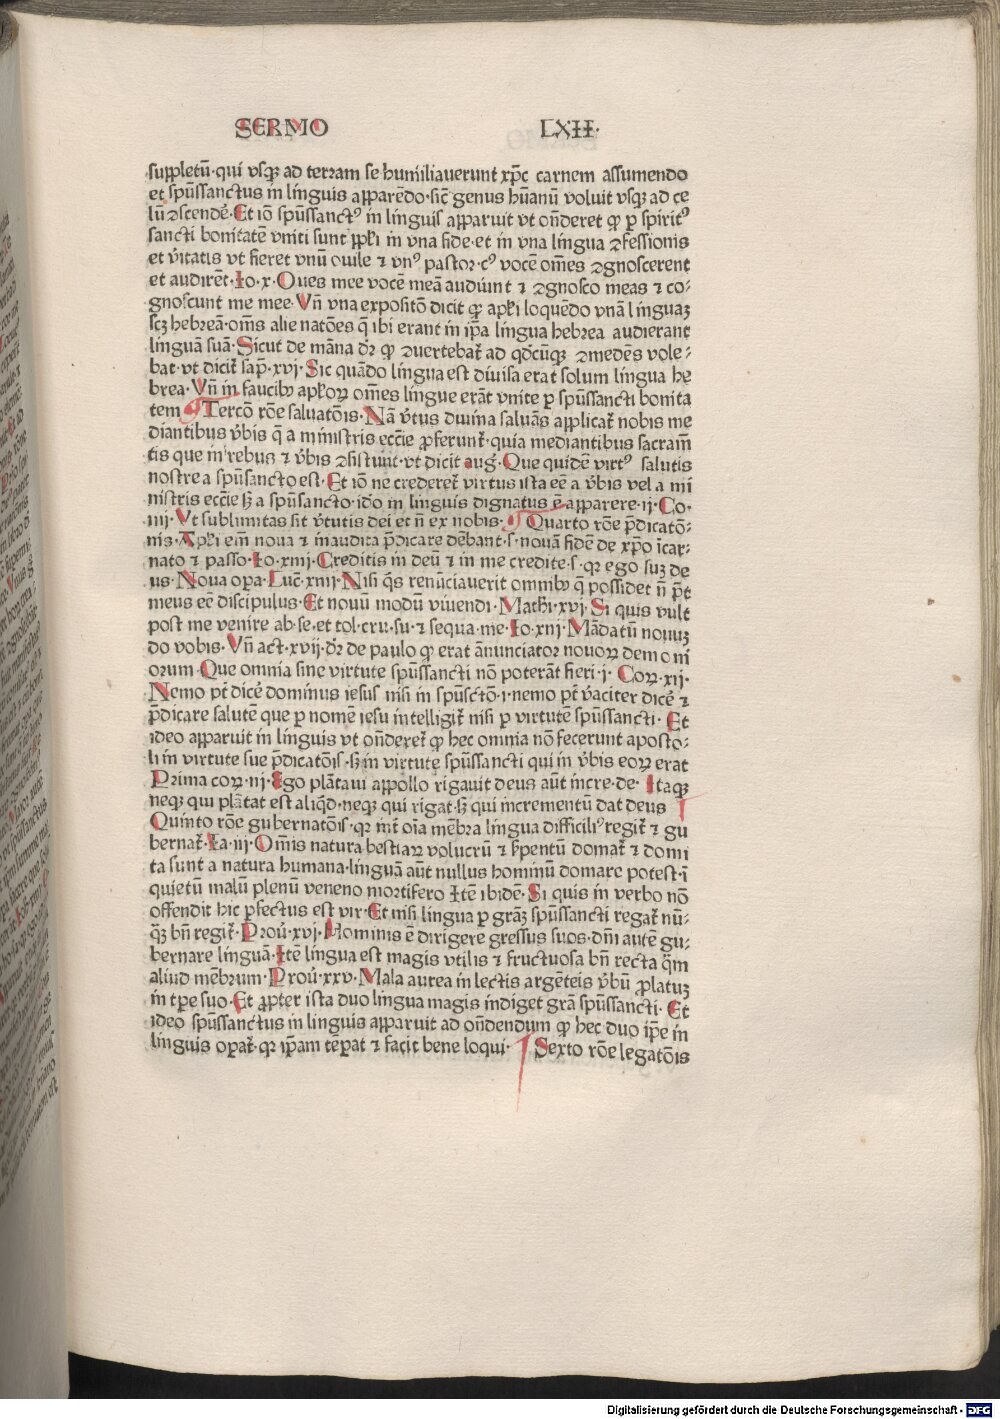 SERMO LXII·
suppletū·qui vsqȝ ad terram se humiliauerunt xp̄c carnem assumendo
et spūssanctus in linguis apparēdo·sic̄ genus hūanū voluit vsqȝ ad ce
lū ꝯscendē·Et iō spūssanctꝰ in linguis apparuit vt on̄deret ꝙ ꝑ spiritꝰ
sancti bonitatē vniti sunt ipp̄li in vna fide·et in vna lingua ꝯfessionis
et v̄itatis vt fieret vnū ouile ⁊ vnꝰ pastor·cꝰ vocē om̄es ꝯgnoscerent
et audirēt·Io·x·Oues mee vocē meā audiunt ⁊ ꝯgnosco meas ⁊ co-
gnoscunt me mee·Vn̄ vna expositō dicit ꝙ apl̄i loquēdo vnā linguaȝ
scȝ hebreā·om̄s alie natōes q̄ ibi erant in ip̄a lingua hebrea audierant
linguā suā·Sicut de māna dr̄ ꝙ ꝯuertebat᷑ ad qd̄cūqȝ ꝯmedēs vole-
bat·vt dicit᷑ sap̄·xvj·Sic quādo lingua est diuisa erat solum lingua he
brea·Vn̄ in faucibꝰ apl̄oꝝ om̄es lingue erāt vnite ꝑ spūssancti bonita
tem ¶ Tercō rōe saluatōis·Nā v̄tus diuina saluās applicat᷑ nobis me
diantibus v̄bis q̄ a ministris eccl̄ie ꝓferunt᷑·quia mediantibus sacram̄
tis que in rebus ⁊ v̄bis ꝯsistunt·vt dicit auḡ·Que quidē virtꝰ salutis
nostre a spūsancto est·Et iō ne crederet᷑ virtus ista eē a v̄bis vel a mi
nistris eccl̄ie sȝ a spūsancto·idō in linguis dignatus ē apparere·ij·Co·
iiij·Vt sublimitas sit v̄tutis dei et n̄ ex nobis·¶ Quarto rōe p̄dicatō-
nis·Apl̄i em̄ noua ⁊ inaudita p̄dicare debant·s·nouā fidē de xp̄o īcar-
nato ⁊ passo·Io·xiiij·Creditis in deū ⁊ in me credite·s·qꝛ ego suȝ de
us·Noua oꝑa·Luc̄·xiiij·Nisi q̄s renūciauerit omnibꝰ q̄ possidet n̄ p̄t
meus eē discipulus·Et nouū modū viuendi·Math̄i·xvj·Si quis vult
post me venire ab·se·et tol·cru·su·⁊ sequa·me·Io·xiij·Mādatū nouuȝ
do vobis·Vn̄ act·xvij·dr̄ de paulo ꝙ erat ānunciator nouoꝝ demoni
orum·Que omnia sine virtute spūssancti nō poterāt fieri·j·Coꝝ·xij·
Nemo pt̄ dicē dominus iesus nisi in spūsctō·i·nemo pt̄ v̄aciter dicē ⁊
p̄dicare salutē que ꝑ nomē iesu intelligit᷑ nisi ꝑ virtutē spūssancti·Et
ideo apparuit in linguis vt on̄deret᷑ ꝙ hec omnia nō fecerunt aposto-
li in virtute sue p̄dicatōis·sȝ in virtute spūssancti qui in v̄bis eoꝝ erat
Prima coꝝ·iij·Ego plātaui appollo rigauit deus aūt incre·de·Itaqȝ
neqȝ qui plātat est aliqd·neqȝ qui rigat·sȝ qui incrementū dat deus ¶
Quinto rōe gubernatōis·qꝛ int᷑ oīa mēbra lingua difficiliꝰ regit᷑ ⁊ gu
bernat᷑·Ia·iij·Om̄is natura bestiaꝝ volucrū ⁊ ẛpentū domat᷑ ⁊ domi
ta sunt a natura humana·linguā aūt nullus hominū domare potest·ī
quietū malū plenū veneno mortifero Itē ibidē·Si quis in verbo nō
offendit hic ꝑfectus est vir·Et nisi lingua ꝑ graȝ spūssancti regat᷑ nū-
qȝ bn̄ regit᷑·Prou̅·xvj·Hominis ē dirigere gressus suos·dn̄i autē gu-
bernare linguā·Itē lingua est magis vtilis ⁊ fructuosa bn̄ recta q̄m
aliud mēbrum·Prou̅·xxv·Mala aurea in lectis argēteis v̄bū ꝓlatuȝ
in tꝑe suo·Et ꝓpter ista duo lingua magis indiget grā spūssancti·Et
ideo spūssanctus in linguis apparuit ad on̄dendum ꝙ hec duo ip̄e in
linguis oꝑat᷑·qꝛ ip̄am tēꝑat ⁊ facit bene loqui·¶ Sexto rōe legatōis
Digitalisierung gefördert durch die Deutsche Forschungsgemeinschaft - DFG